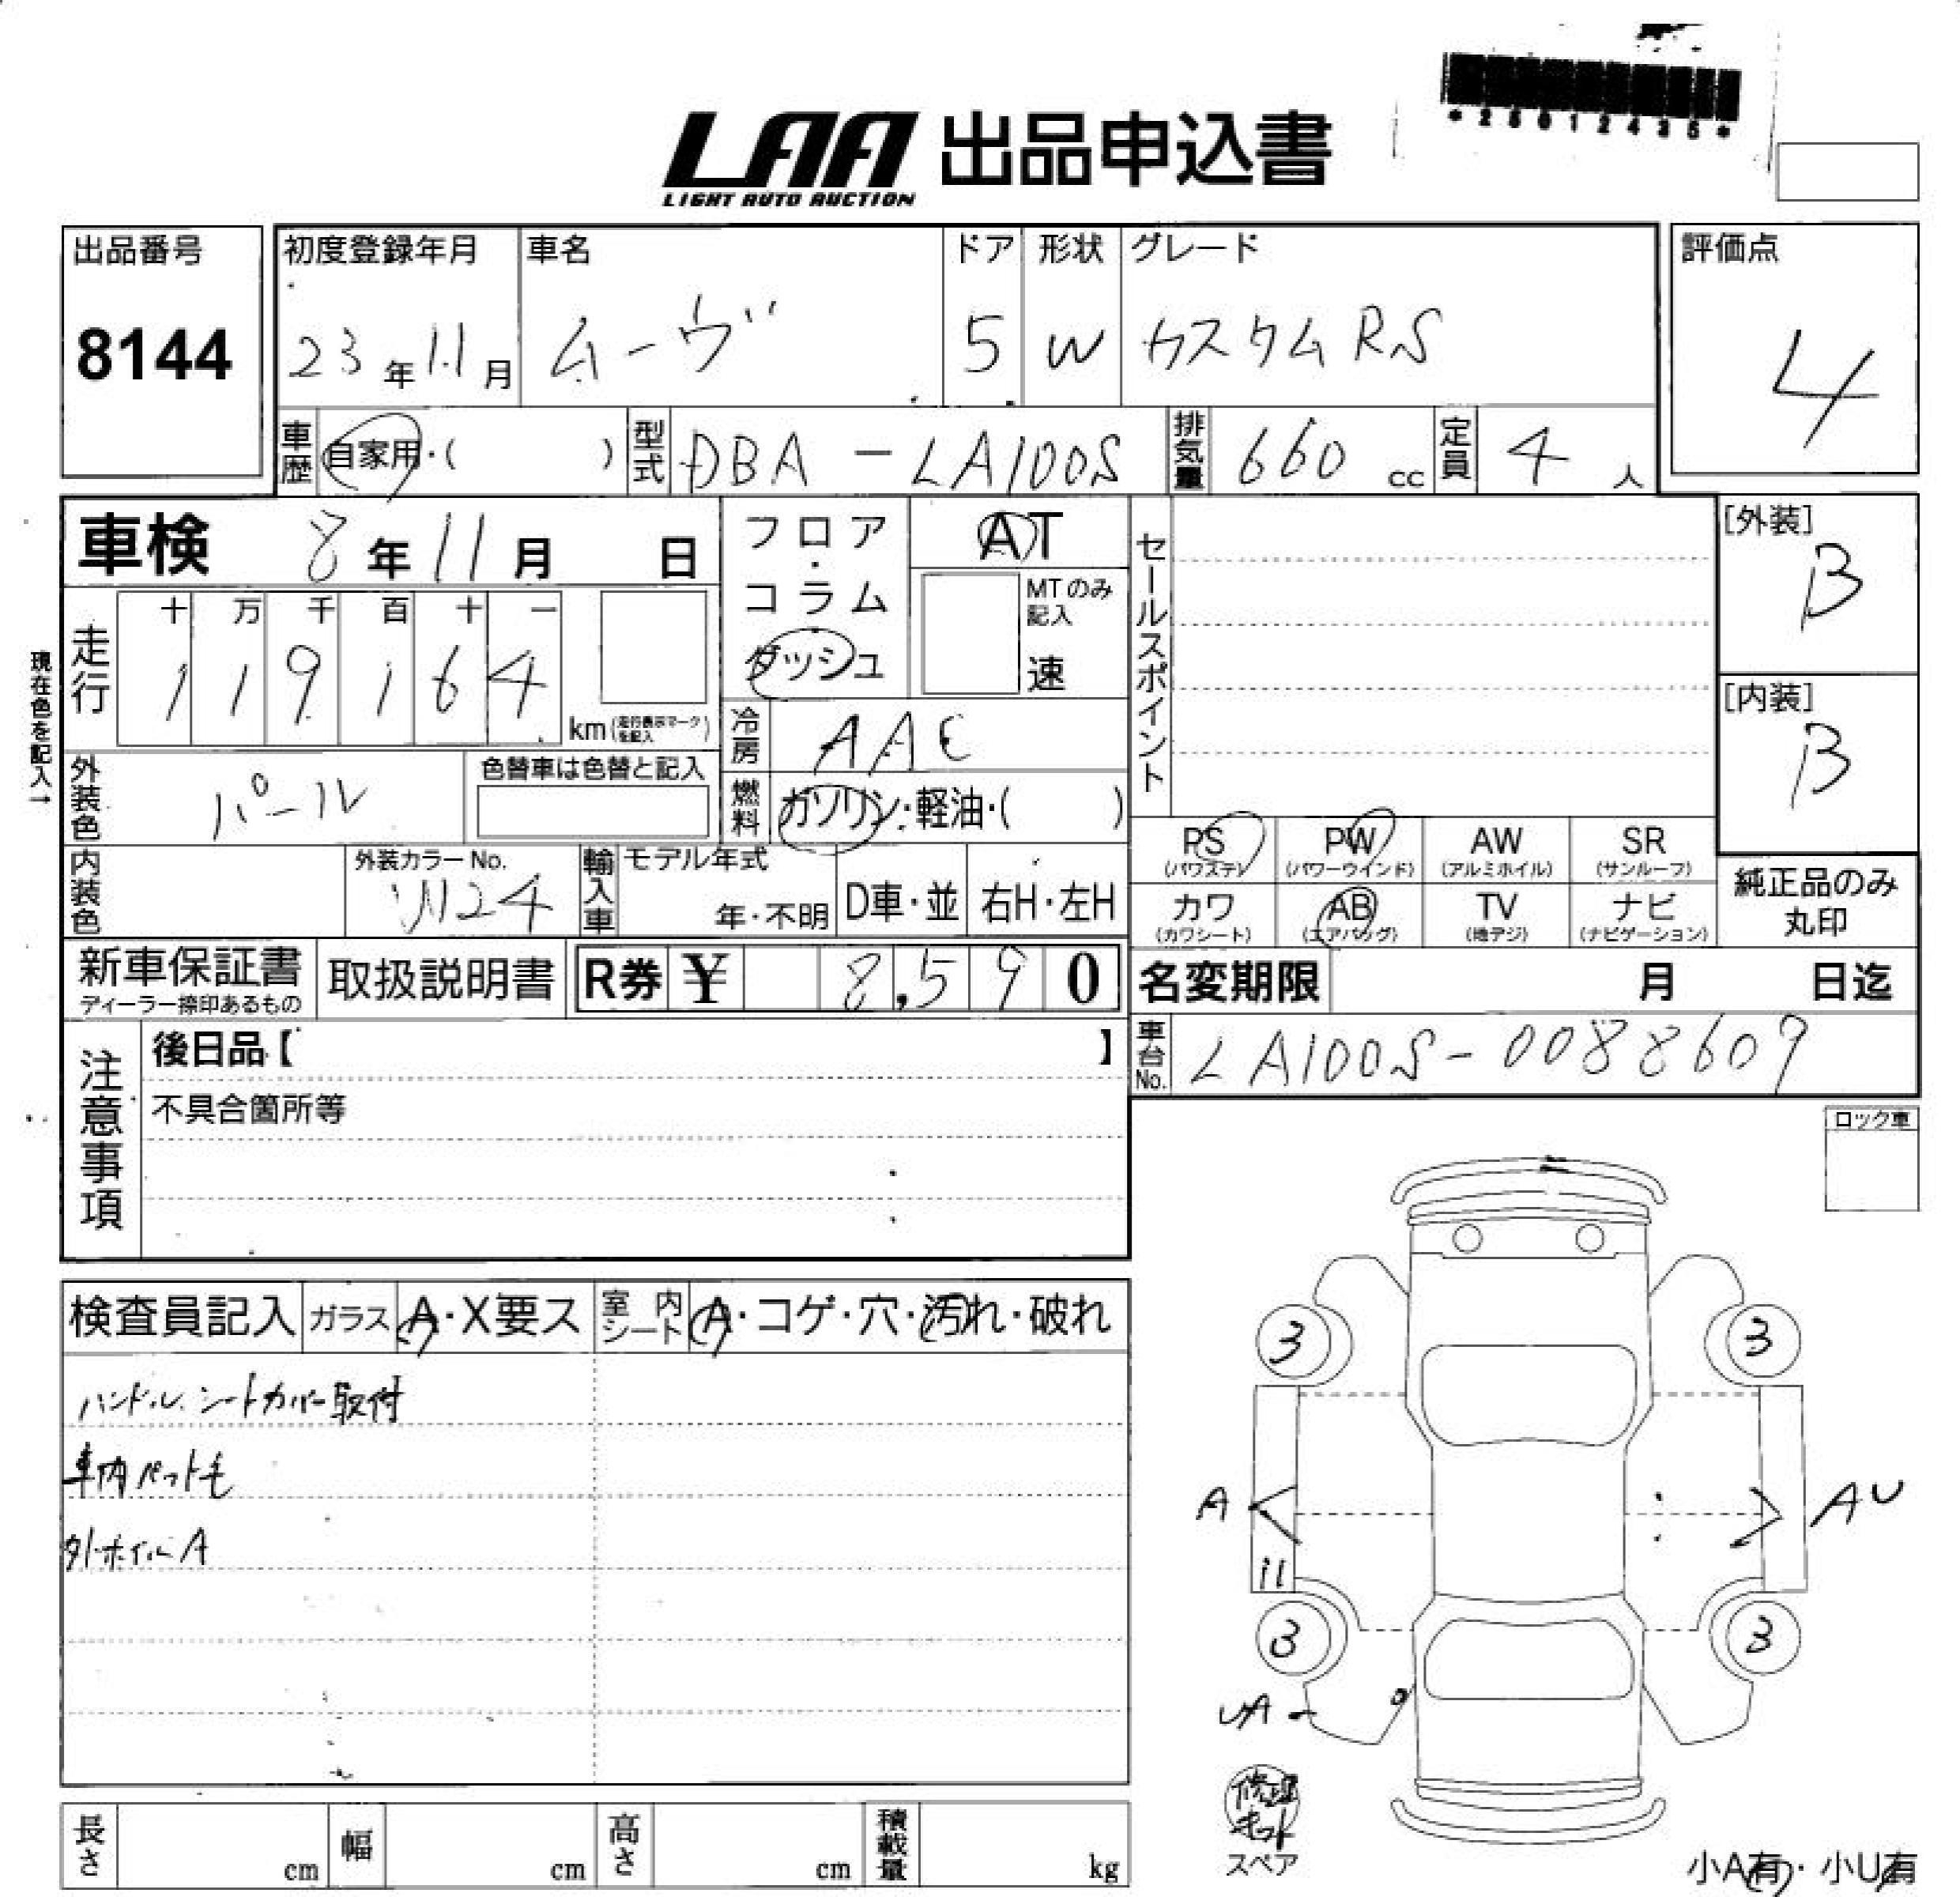 *28012435*
LAA 出品申込書
LIGHT AUTO AUCTION
出品番号
8144
初度登録年月
23年11月
車名
ムーヴ
ドア
5
形状
W
グレード
カスタムRS
評価点
4
車歴 自家用・( )
型式 DBA-LA100S
排気量 660cc
定員 4人
車検 8年11月 日
フロア・コラム ダッシュ
AT
MTのみ記入
速
セールスポイント
[外装]
B
[内装]
B
現在色を記入→
走行
十 万 千 百 十 一
1 1 9 1 6 4
km (走行表示マークを記入)
冷房 AAC
外装色 パール
色替車は色替と記入
燃料 ガソリン・軽油・( )
内装色
外装カラーNo.
W24
輸入車
モデル年式
年・不明
D車・並
右H・左H
PS (パワステ)
PW (パワーウインド)
AW (アルミホイル)
SR (サンルーフ)
カワ (カワシート)
AB (エアバッグ)
TV (地デジ)
ナビ (ナビゲーション)
純正品のみ丸印
新車保証書
ディーラー捺印あるもの
取扱説明書
R券 ¥ 8,590
名変期限 月 日迄
車台No. LA100S-0088609
注意事項
後日品【 】
不具合箇所等
ロック車
検査員記入
ガラス A・X要ス
室内シート A・コゲ・穴・汚れ・破れ
ハンドル.シートカバー取付
車内ペット毛
外.ホイルA
3
3
A
AU
3
3
UA
修理キット
スペア
小A有・小U有
長さ cm
幅 cm
高さ cm
積載量 kg